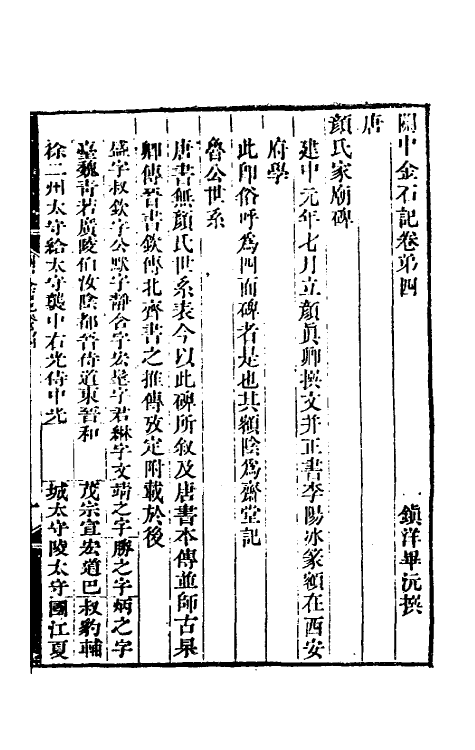 關中金石記卷第四
鎮洋畢沅撰
唐
顏氏家廟碑
建中元年七月立顏眞卿撰文并正書李陽冰篆額在西安
府學
此卽俗呼爲四面碑者是也其額陰爲齋堂記
魯公世系
唐書無顏氏世系表今以此碑所叙及唐書本傳並師古杲
卿傳晉書欽傳北齊書之推傳攷定附載於後
盛字叔欽字公默字靜含字宏髦字君綝字文靖之字騰之字炳之字
臺魏青若廣陵伯汝陰都晉侍道東晉和 茂宗宣宏道巴叔豹輔
徐二州太守給太守襲中右光侍中光 城太守陵太守國江夏